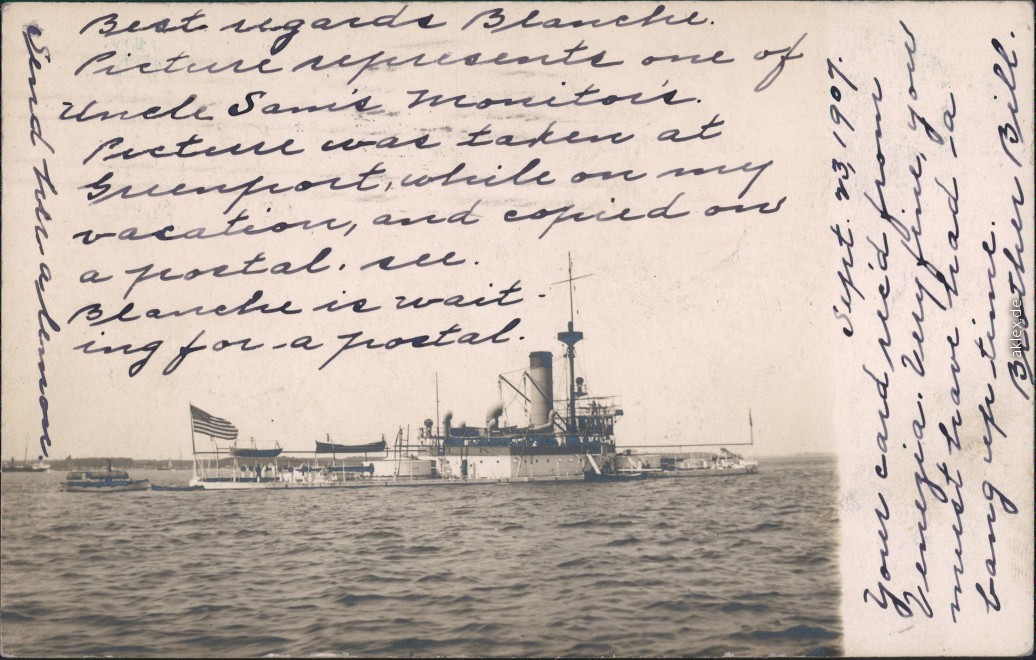 Best regards Blanche.
Picture represents one of
Uncle Sam's Monitors.
Picture was taken at
Greenport, while on my
vacation, and copied on
a postal. see.
Blanche is wait-
ing for a postal.
Send her a lemon.
Sept. 23, 1907.
Your card rec'd from
Venezia. Very fine, you
must have had a
bang up time.
Brother Bill.
aklex.de